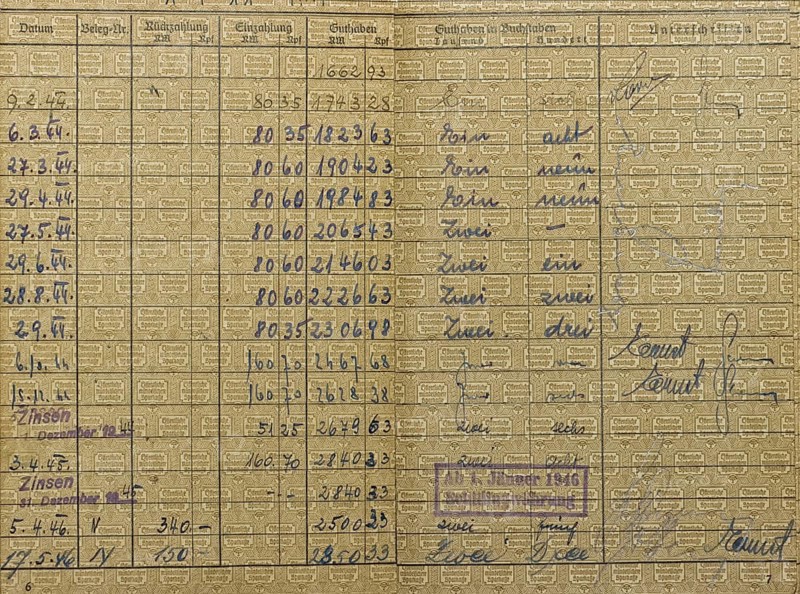 Datum Beleg-Nr. Rückzahlung Einzahlung Guthaben Guthaben in Buchstaben Unterschriften
RM Rpf RM Rpf RM Rpf Tausend Hundert
1662 93
9.2.44. 80 35 1743 28 Ein
6.3.44. 80 35 1823 63 Ein acht
27.3.44. 80 60 1904 23 Ein neun
29.4.44. 80 60 1984 83 Ein neun
27.5.44. 80 60 2065 43 Zwei –
29.6.44. 80 60 2146 03 Zwei ein
28.8.44. 80 60 2226 63 Zwei zwei
2.9.44. 80 35 2306 98 Zwei drei
6.10.44 160 70 2467 68
15.12.44 160 70 2628 38
Zinsen
Dezember 1944 51 25 2679 63 zwei sechs
3.4.45. 160 70 2840 33 zwei acht
Zinsen
31. Dezember 1945 -- 2840 33
Ab 1. Jänner 1946
Schillingwährung
5.4.46. N 340 – 2500 33 zwei fünf
17.5.46 N 150 – 2350 33 Zwei Drei
6
7